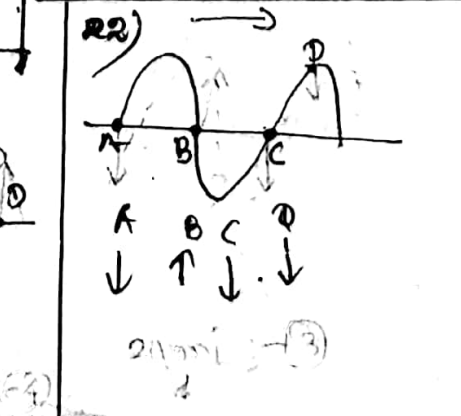 22)
D
A
B
C
D
A B C D
↓ ↑ ↓ . ↓
(3)